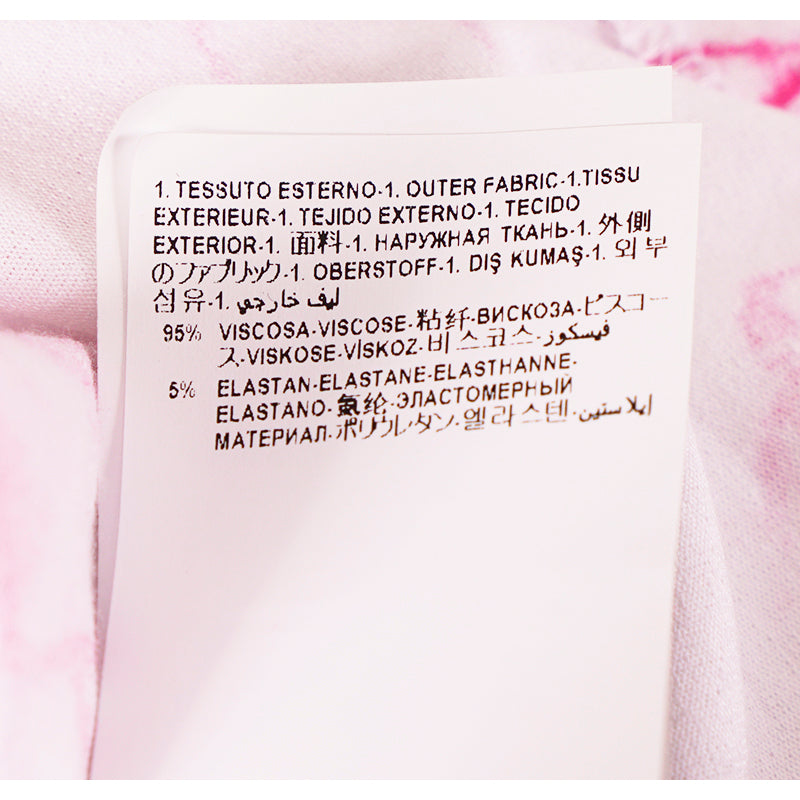 1. TESSUTO ESTERNO-1. OUTER FABRIC-1.TISSU
EXTERIEUR-1. TEJIDO EXTERNO-1. TECIDO
EXTERIOR-1. 面料-1. НАРУЖНАЯ ТКАНЬ-1. 外側
のファブリック-1. OBERSTOFF-1. DIŞ KUMAŞ-1. 외 부
섬 유-1. ليف خارجي
95% VISCOSA-VISCOSE-粘纤-ВИСКОЗА-ビスコー
ス-VISKOSE-VİSKOZ-비 스 코 스-فيسكوز
5% ELASTAN-ELASTANE-ELASTHANNE-
ELASTANO-氨纶-ЭЛАСТОМЕРНЫЙ
МАТЕРИАЛ-ポリウレタン-엘 라 스 텐-إيلاستين